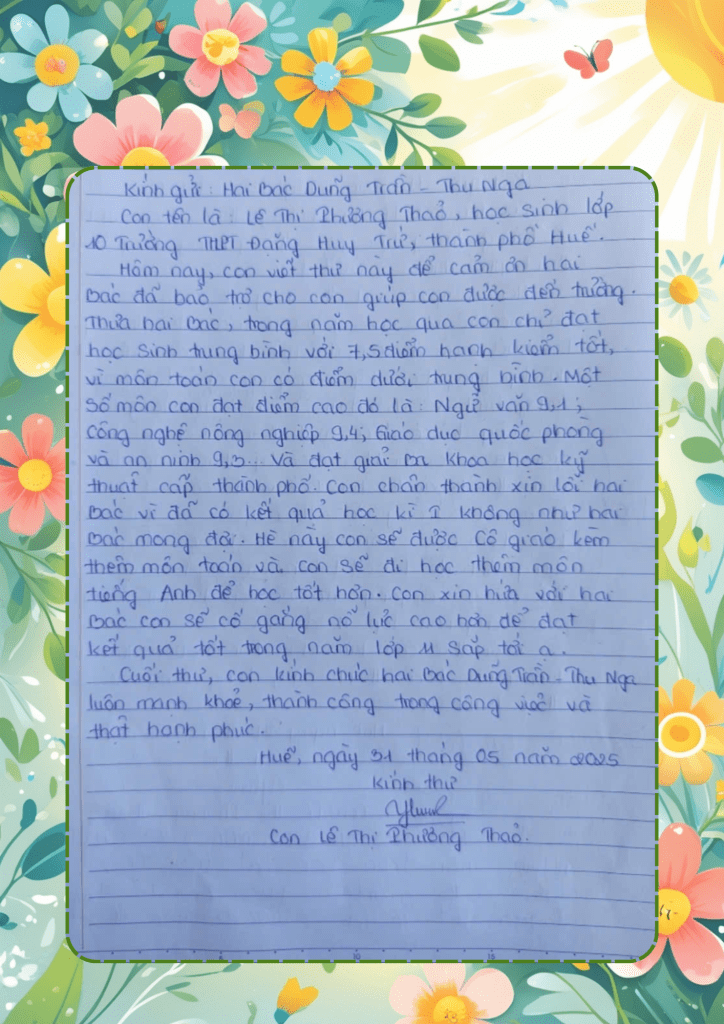 Kính gửi: Hai Bác Dũng Trần - Thu Nga
Con tên là: Lê Thị Phương Thảo, học sinh lớp
10 Trường THPT Đặng Huy Trứ, thành phố Huế.
Hôm nay, con viết thư này để cảm ơn hai
Bác đã bảo trợ cho con giúp con được đến trường.
Thưa hai Bác, trong năm học qua con chỉ đạt
học sinh trung bình với 7,5 điểm hạnh kiểm tốt,
vì môn toán con có điểm dưới trung bình. Một
số môn con đạt điểm cao đó là: Ngữ văn 9,1;
Công nghệ nông nghiệp 9,4; Giáo dục quốc phòng
và an ninh 9,3... Và đạt giải Ba khoa học kỹ
thuật cấp thành phố. Con chân thành xin lỗi hai
Bác vì đã có kết quả học kì I không như hai
Bác mong đợi. Hè này con sẽ được Cô giáo kèm
thêm môn toán và con sẽ đi học thêm môn
tiếng Anh để học tốt hơn. Con xin hứa với hai
Bác con sẽ cố gắng nỗ lực cao hơn để đạt
kết quả tốt trong năm lớp 11 sắp tới ạ.
Cuối thư, con kính chúc hai Bác Dũng Trần - Thu Nga
luôn mạnh khoẻ, thành công trong công việc và
thật hạnh phúc.
Huế, ngày 31 tháng 05 năm 2025
Kính thư
Con Lê Thị Phương Thảo.